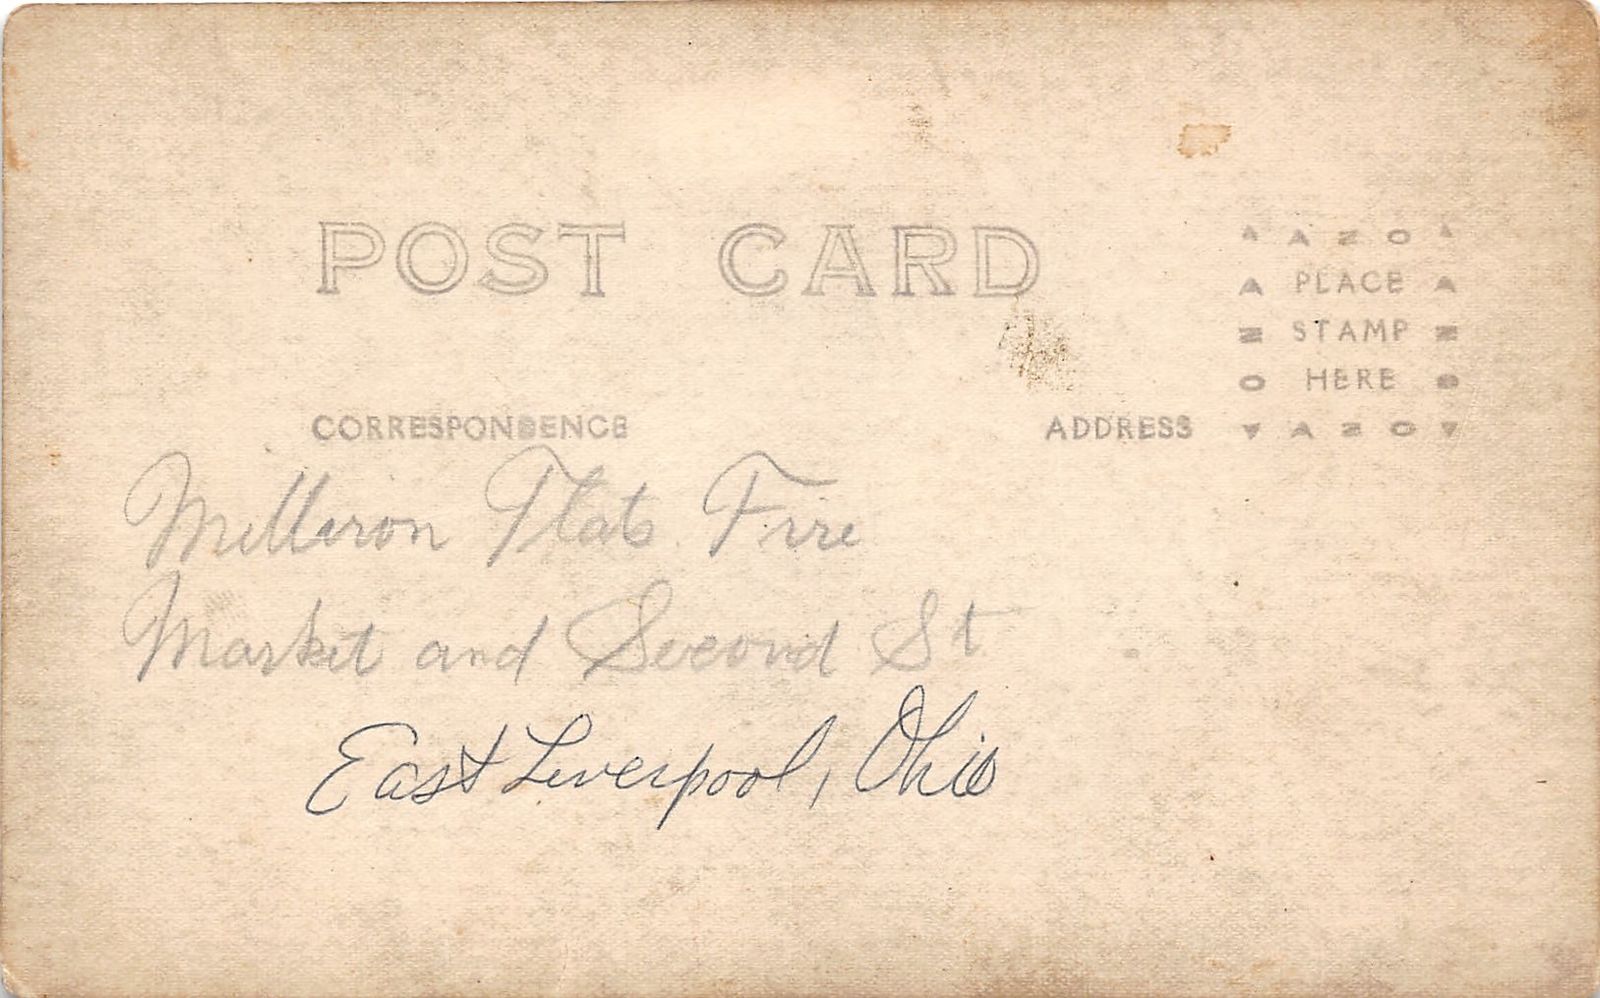 POST CARD
AZO
PLACE
STAMP
HERE
AZO
AZO
AZO
CORRESPONDENCE
ADDRESS
Milliron Flats Fire
Market and Second St
East Liverpool, Ohio